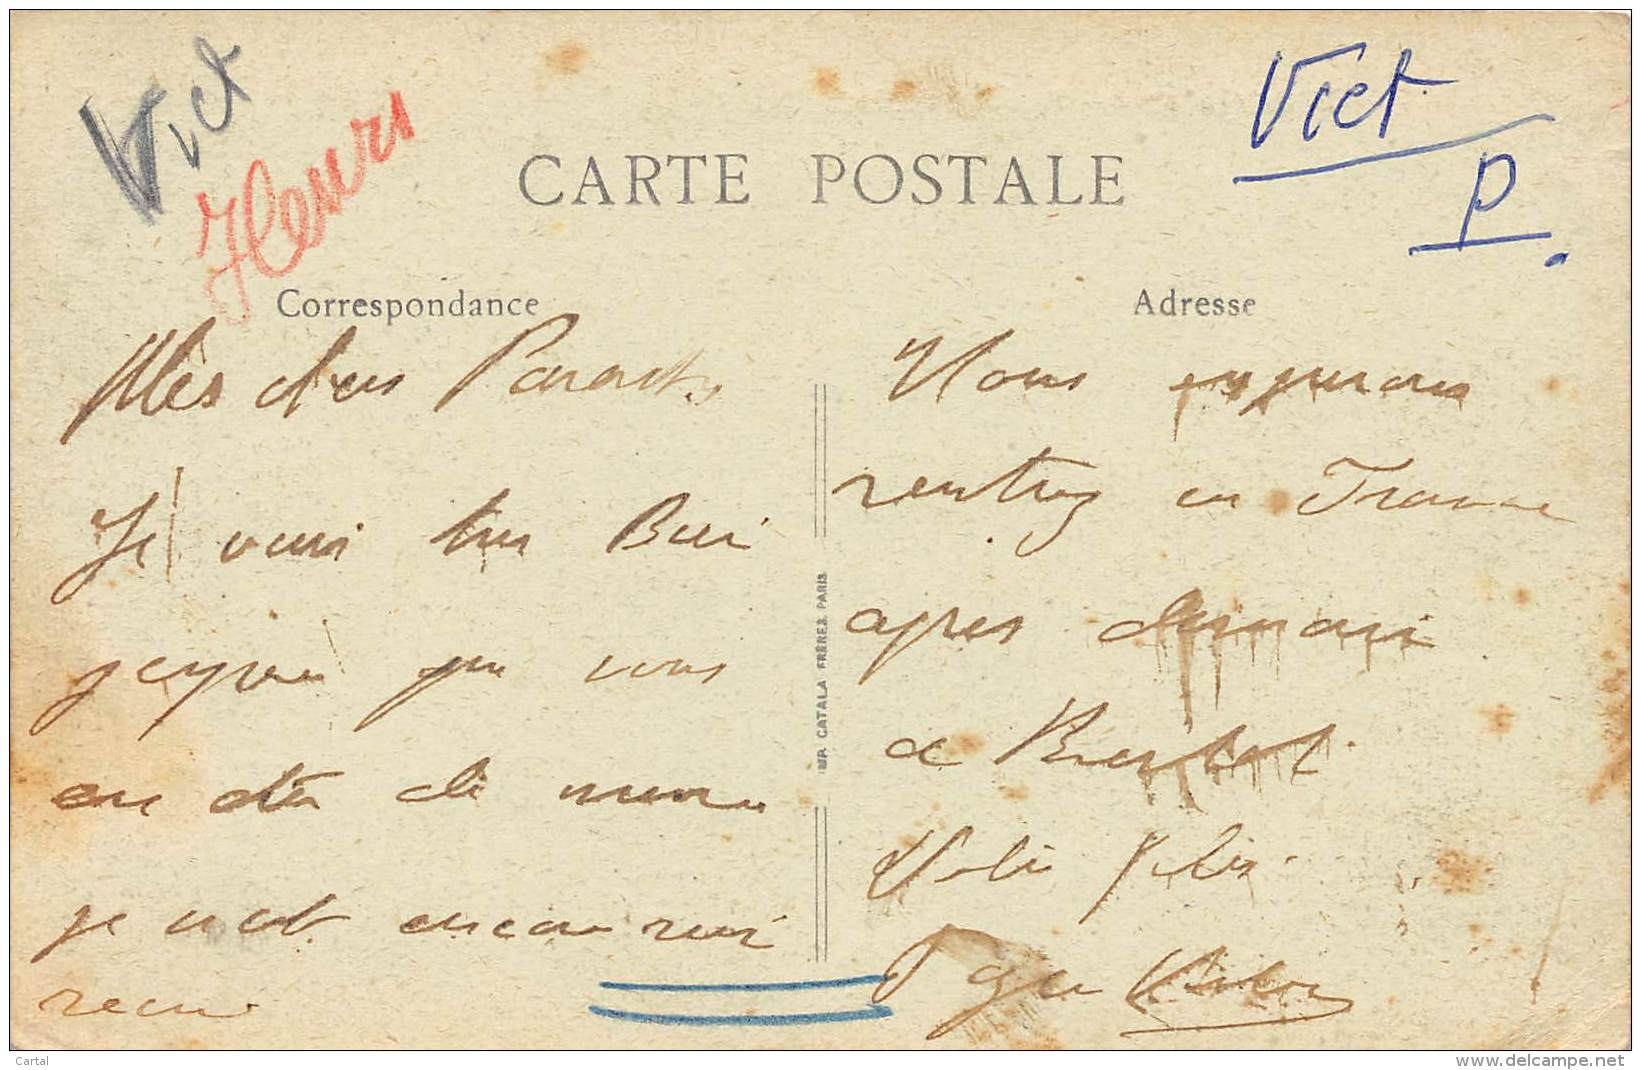 Vict
Fleurs
Vict
P.
CARTE POSTALE
Correspondance
Adresse
Mes chers Parents
Je vais bien Bien
j'espère que vous
en de meme
je n'est encore rien
recu
Nous esperons
rentrez en France
apres demain
a
Votre fils
IMP. CATALA FRÈRES PARIS
Cartal
www.delcampe.net